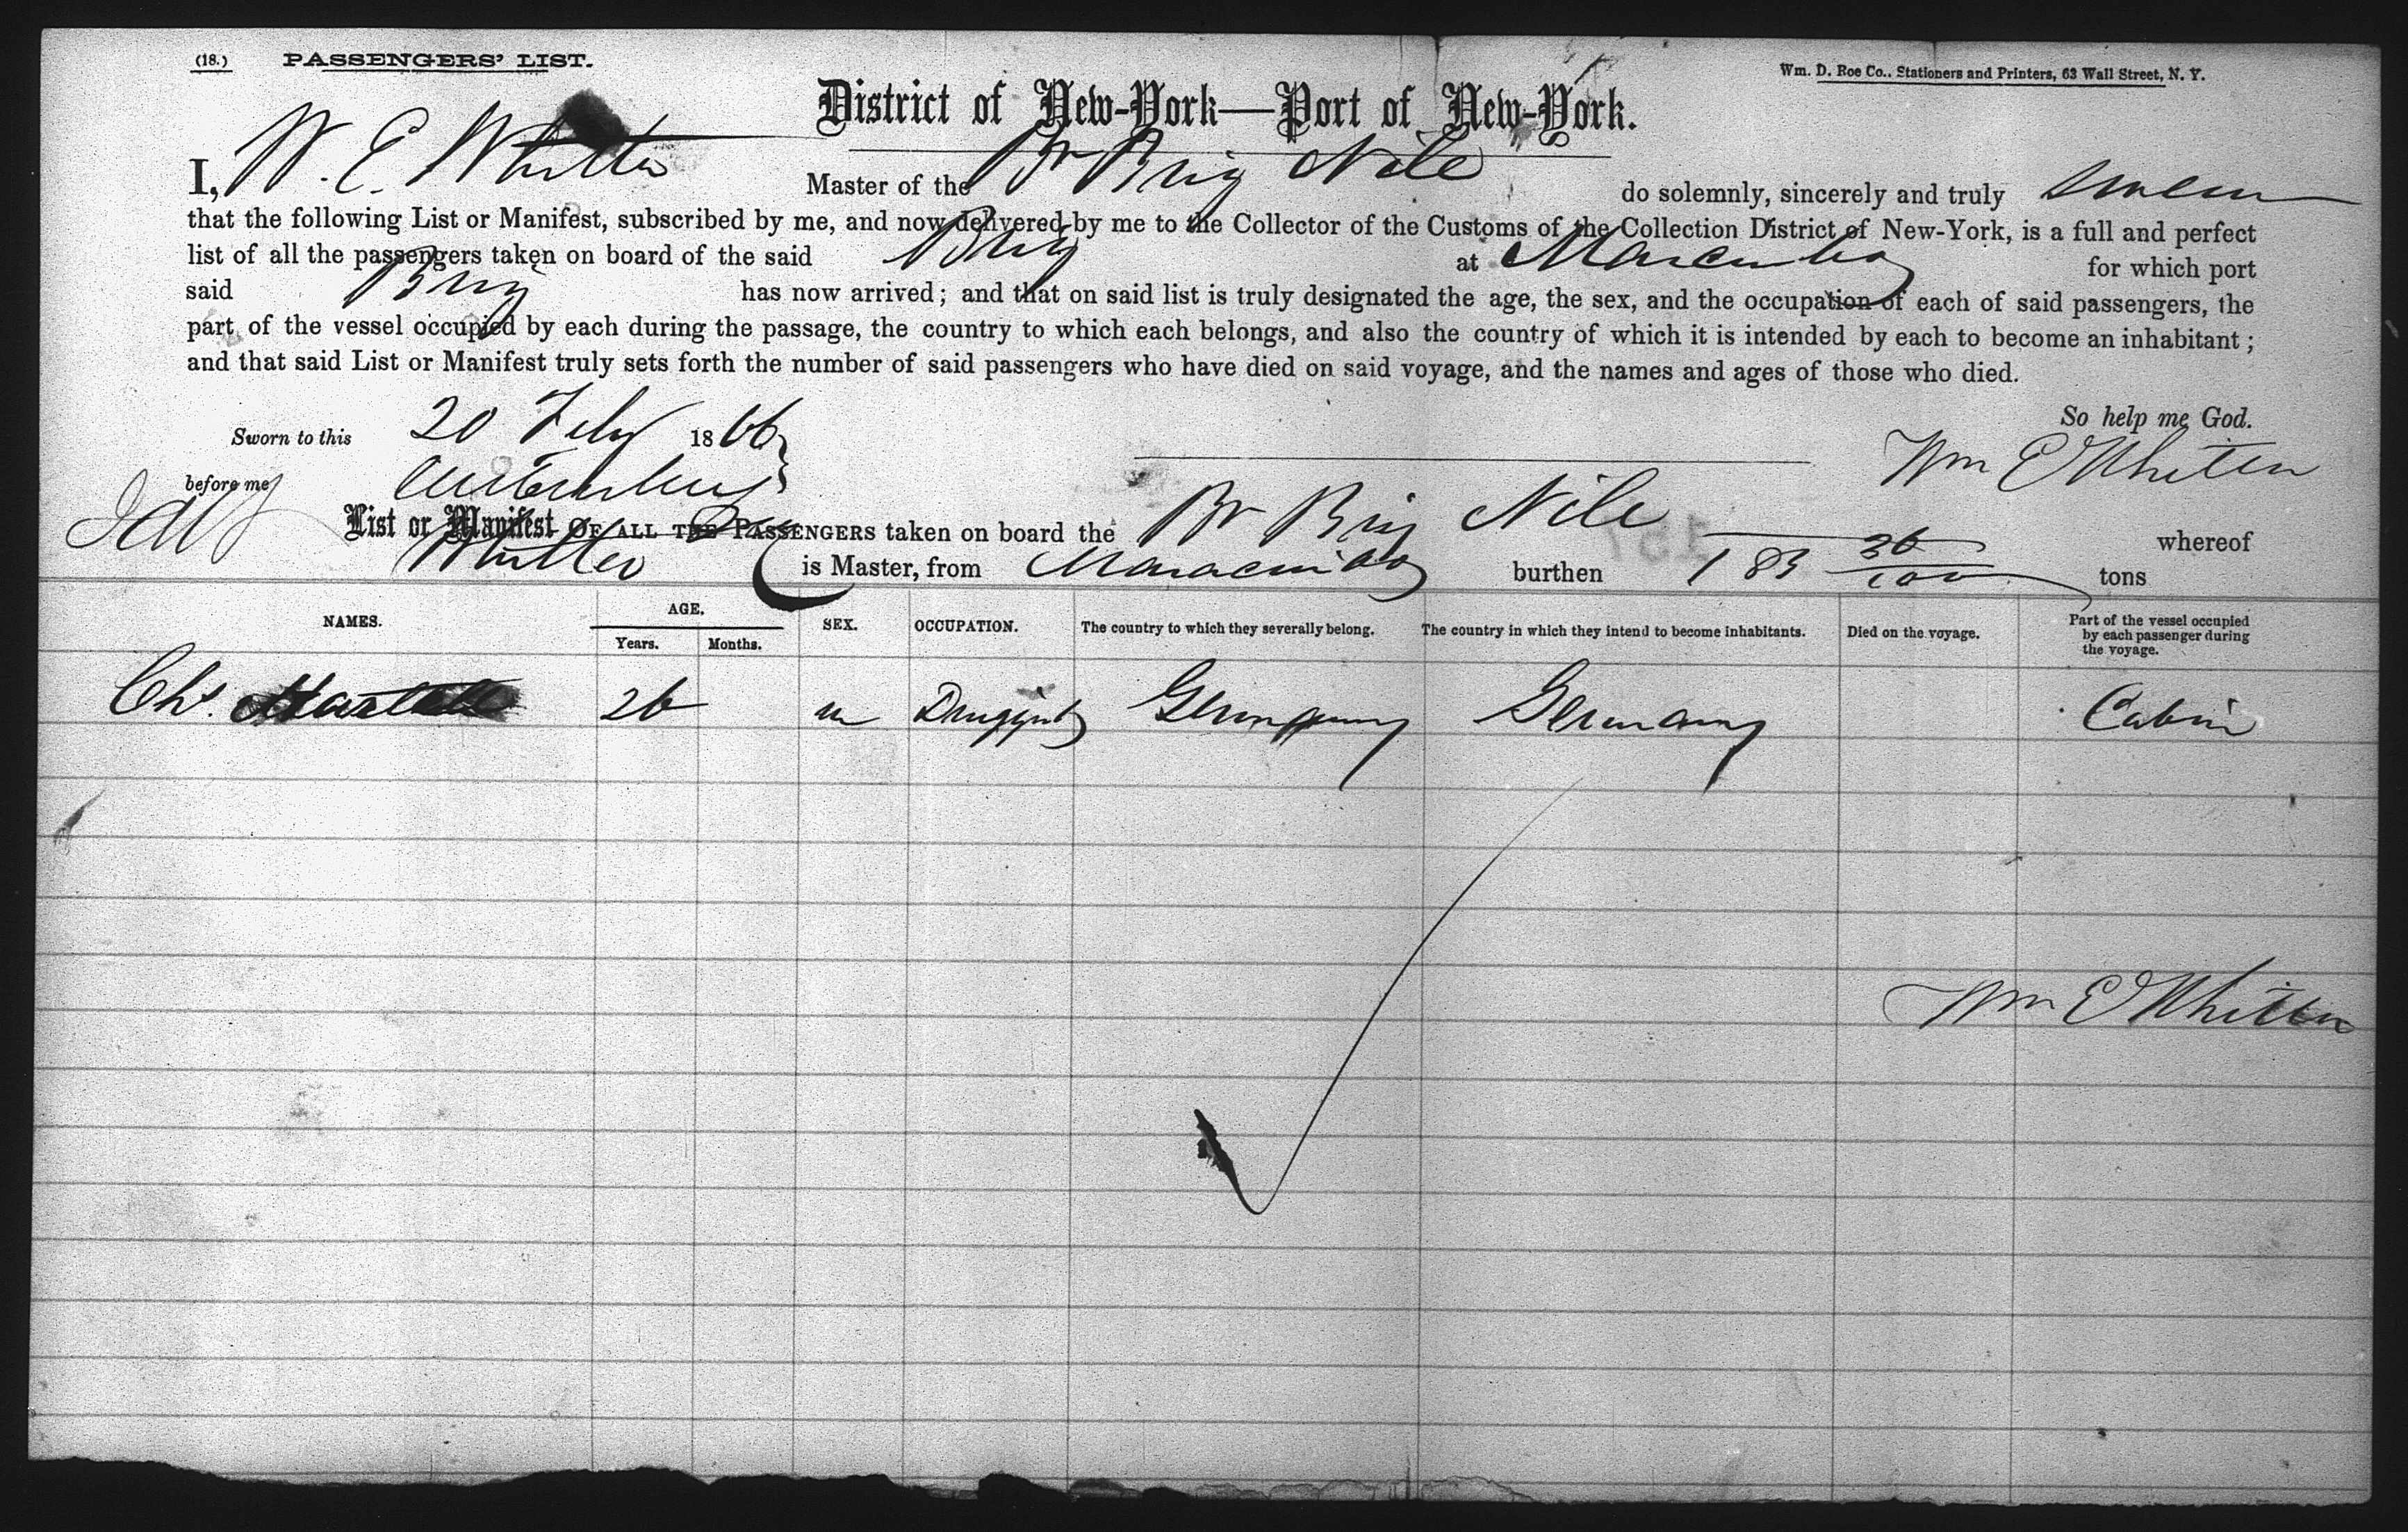 (18.) PASSENGERS' LIST. Wm. D. Roe Co., Stationers and Printers, 63 Wall Street, N. Y.
District of New-York—Port of New-York.
I, W. E. Whitten Master of the Br Brig Nile do solemnly, sincerely and truly swear
that the following List or Manifest, subscribed by me, and now delivered by me to the Collector of the Customs of the Collection District of New-York, is a full and perfect
list of all the passengers taken on board of the said Brig at Maracaibo for which port
said Brig has now arrived; and that on said list is truly designated the age, the sex, and the occupation of each of said passengers, the
part of the vessel occupied by each during the passage, the country to which each belongs, and also the country of which it is intended by each to become an inhabitant;
and that said List or Manifest truly sets forth the number of said passengers who have died on said voyage, and the names and ages of those who died.
So help me God.
Sworn to this 20 Feby 1866
Wm E Whitten
before me
List or Manifest OF ALL THE PASSENGERS taken on board the Br Brig Nile whereof
Whitten is Master, from Maracaibo burthen 183 36/100 tons
NAMES. AGE. SEX. OCCUPATION. The country to which they severally belong. The country in which they intend to become inhabitants. Died on the voyage. Part of the vessel occupied by each passenger during the voyage.
Years. Months.
Chs. 26 m Druggist Germany Germany Cabin
Wm E Whitten